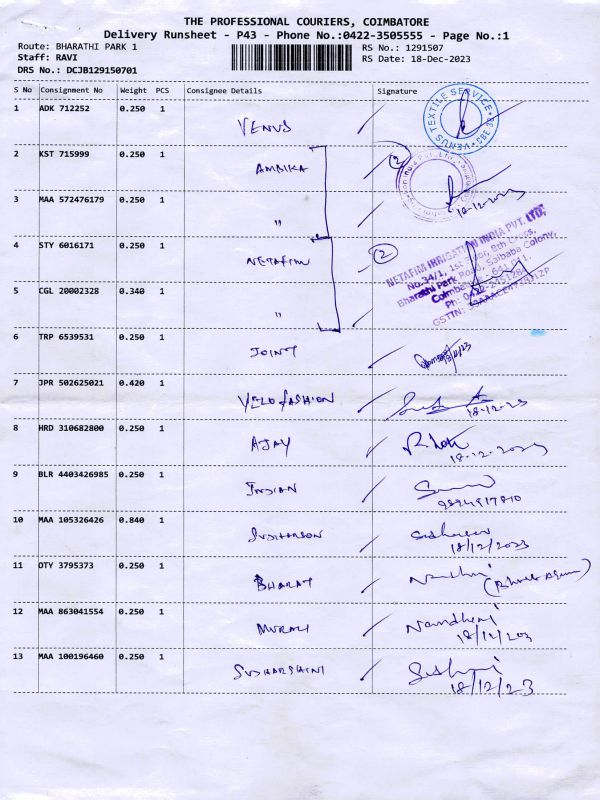 THE PROFESSIONAL COURIERS, COIMBATORE
Delivery Runsheet - P43 - Phone No.:0422-3505555 - Page No.:1
Route: BHARATHI PARK 1 RS No.: 1291507
Staff: RAVI RS Date: 18-Dec-2023
DRS No.: DCJB129150701
S No Consignment No Weight PCS Consignee Details Signature
1 ADK 712252 0.250 1 VENUS
VENUS TEXTILE SERVICE
2 KST 715999 0.250 1 AMBIKA 2
3 MAA 572476179 0.250 1 " 18-12-2023
4 STY 6016171 0.250 1 NETAFIM 2
NETAFIM IRRIGATION INDIA PVT. LTD,
No.34/1, 1st Floor, 8th Cross,
Bharathi Park Road, Saibaba Colony,
5 CGL 20002328 0.340 1 "
GSTTN:
6 TRP 6539531 0.250 1 JOINT 18/12/23
7 JPR 502625021 0.420 1 VELO FASHION 18-12-23
8 HRD 310682800 0.250 1 AJAY 18-12-2023
9 BLR 4403426985 0.250 1 INDIAN 9894917810
10 MAA 105326426 0.840 1 SUDHARSON
18/12/2023
11 OTY 3795373 0.250 1 BHARAT
12 MAA 863041554 0.250 1 MURALI Nandhini
18/12/203
13 MAA 100196460 0.250 1 SUDHARSHINI
18/12/23